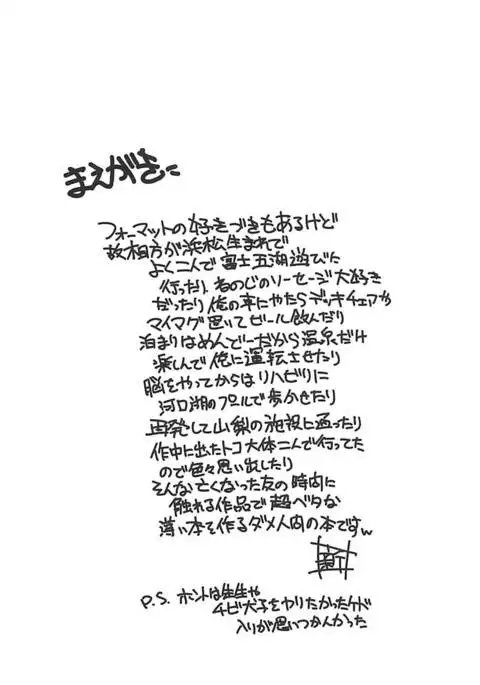 まえがきー
フォーマットの好きずきもあるけど
故相方が浜松生まれで
よく二人で富士五湖遊びに
行ったり、ものじのソーセージ大好き
だったり俺の車にやたらデッキチェアか
マイマグ置いてビール飲んだり
泊まりはめんどーだから温泉だけ
楽しんで俺に運転させたり
脳をやってからはリハビリに
河口湖のプールで歩かせたり
再発して山梨の施設に通ったり
作中に出たトコ大体二人で行ってた
ので色々思い出したり
そんな亡くなった友の時間に
触れる作品で超ベタな
薄い本を作るダメ人間の本ですw
P.S. ホントは先生や
チビ犬子をヤりたかったケド
入りが思いつかんかった